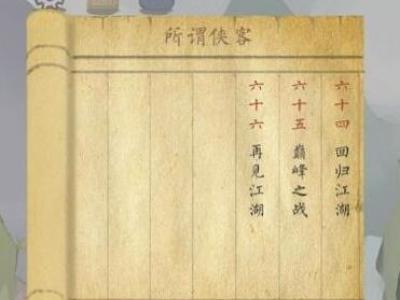 所谓侠客
六十四 回归江湖
六十五 巅峰之战
六十六 再见江湖